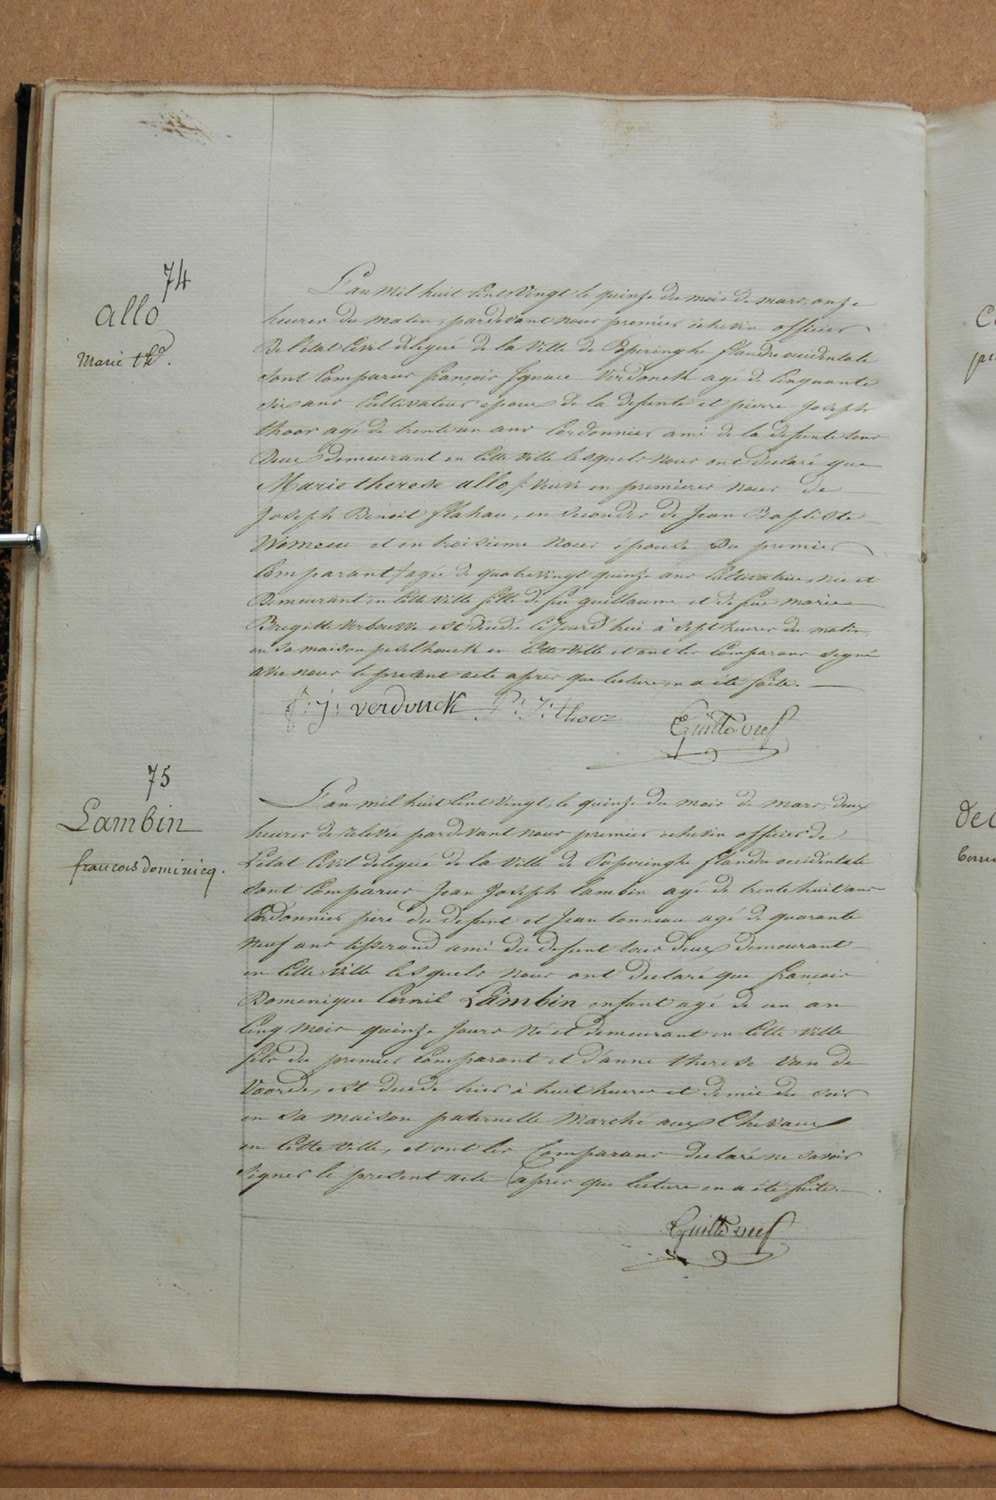 74
allo
Marie th.a
L'an mil huit Cent Vingt le quinze du mois de mars onze
heures du matin, pardevant nous premier echevin officier
De l'etat Civil delegué de la Ville de Poperinghe flandre occidentale
Sont Comparus françois Ignace Verdonck agé de Cinquante
Six ans Cultivateur epoux de la defunte et pierre Joseph
thoor agé de trente un ans Cordonnier ami de la defunte tous
Deux demeurant en Cette Ville lesquels nous ont declaré que
Marie therese allo, Veuve en premieres noces de
Joseph Benoit flahau, en Secondes de Jean Baptiste
et en troisieme Noces épouse Du premier
Comparant agée de quatrevingt quinze ans Cultivatrice, née et
Demeurant en Cette Ville fille de feu guillaume et de feue marie
Brigitte est décédé Ce Jourd'hui à Sept heures du matin
en sa maison en Cette Ville et ont les Comparans Signé
avec nous le present acte apres que lecture en a été faite.
f: J: verdonck P: J: thoor
75
Lambin
francois dominicq.
L'an mil huit Cent Vingt, le quinze du mois de mars, deux
heures de relevée pardevant nous premier echevin officier de
L'etat Civil delegué de la Ville de Poperinghe flandre occidentale
Sont Comparus Jean Joseph Lambin agé de trente huit ans
Cordonnier père du defunt et Jean Conneau agé de quarante
Neuf ans tisserand ami du defunt tous deux demeurant
en Cette Ville lesquels nous ont declaré que françois
Domenique Cornil Lambin enfant agé de un an
Cinq mois quinze Jours Né et demeurant en Cette Ville
fils du premier Comparant et d'anne therese Van de
Voorde, est decedé hier à huit heures et demie du soir
en sa maison paternelle Marché aux Chevaux
en Cette Ville, et ont les Comparans declaré ne savoir
Signer le present acte apres que lecture en a été faite.